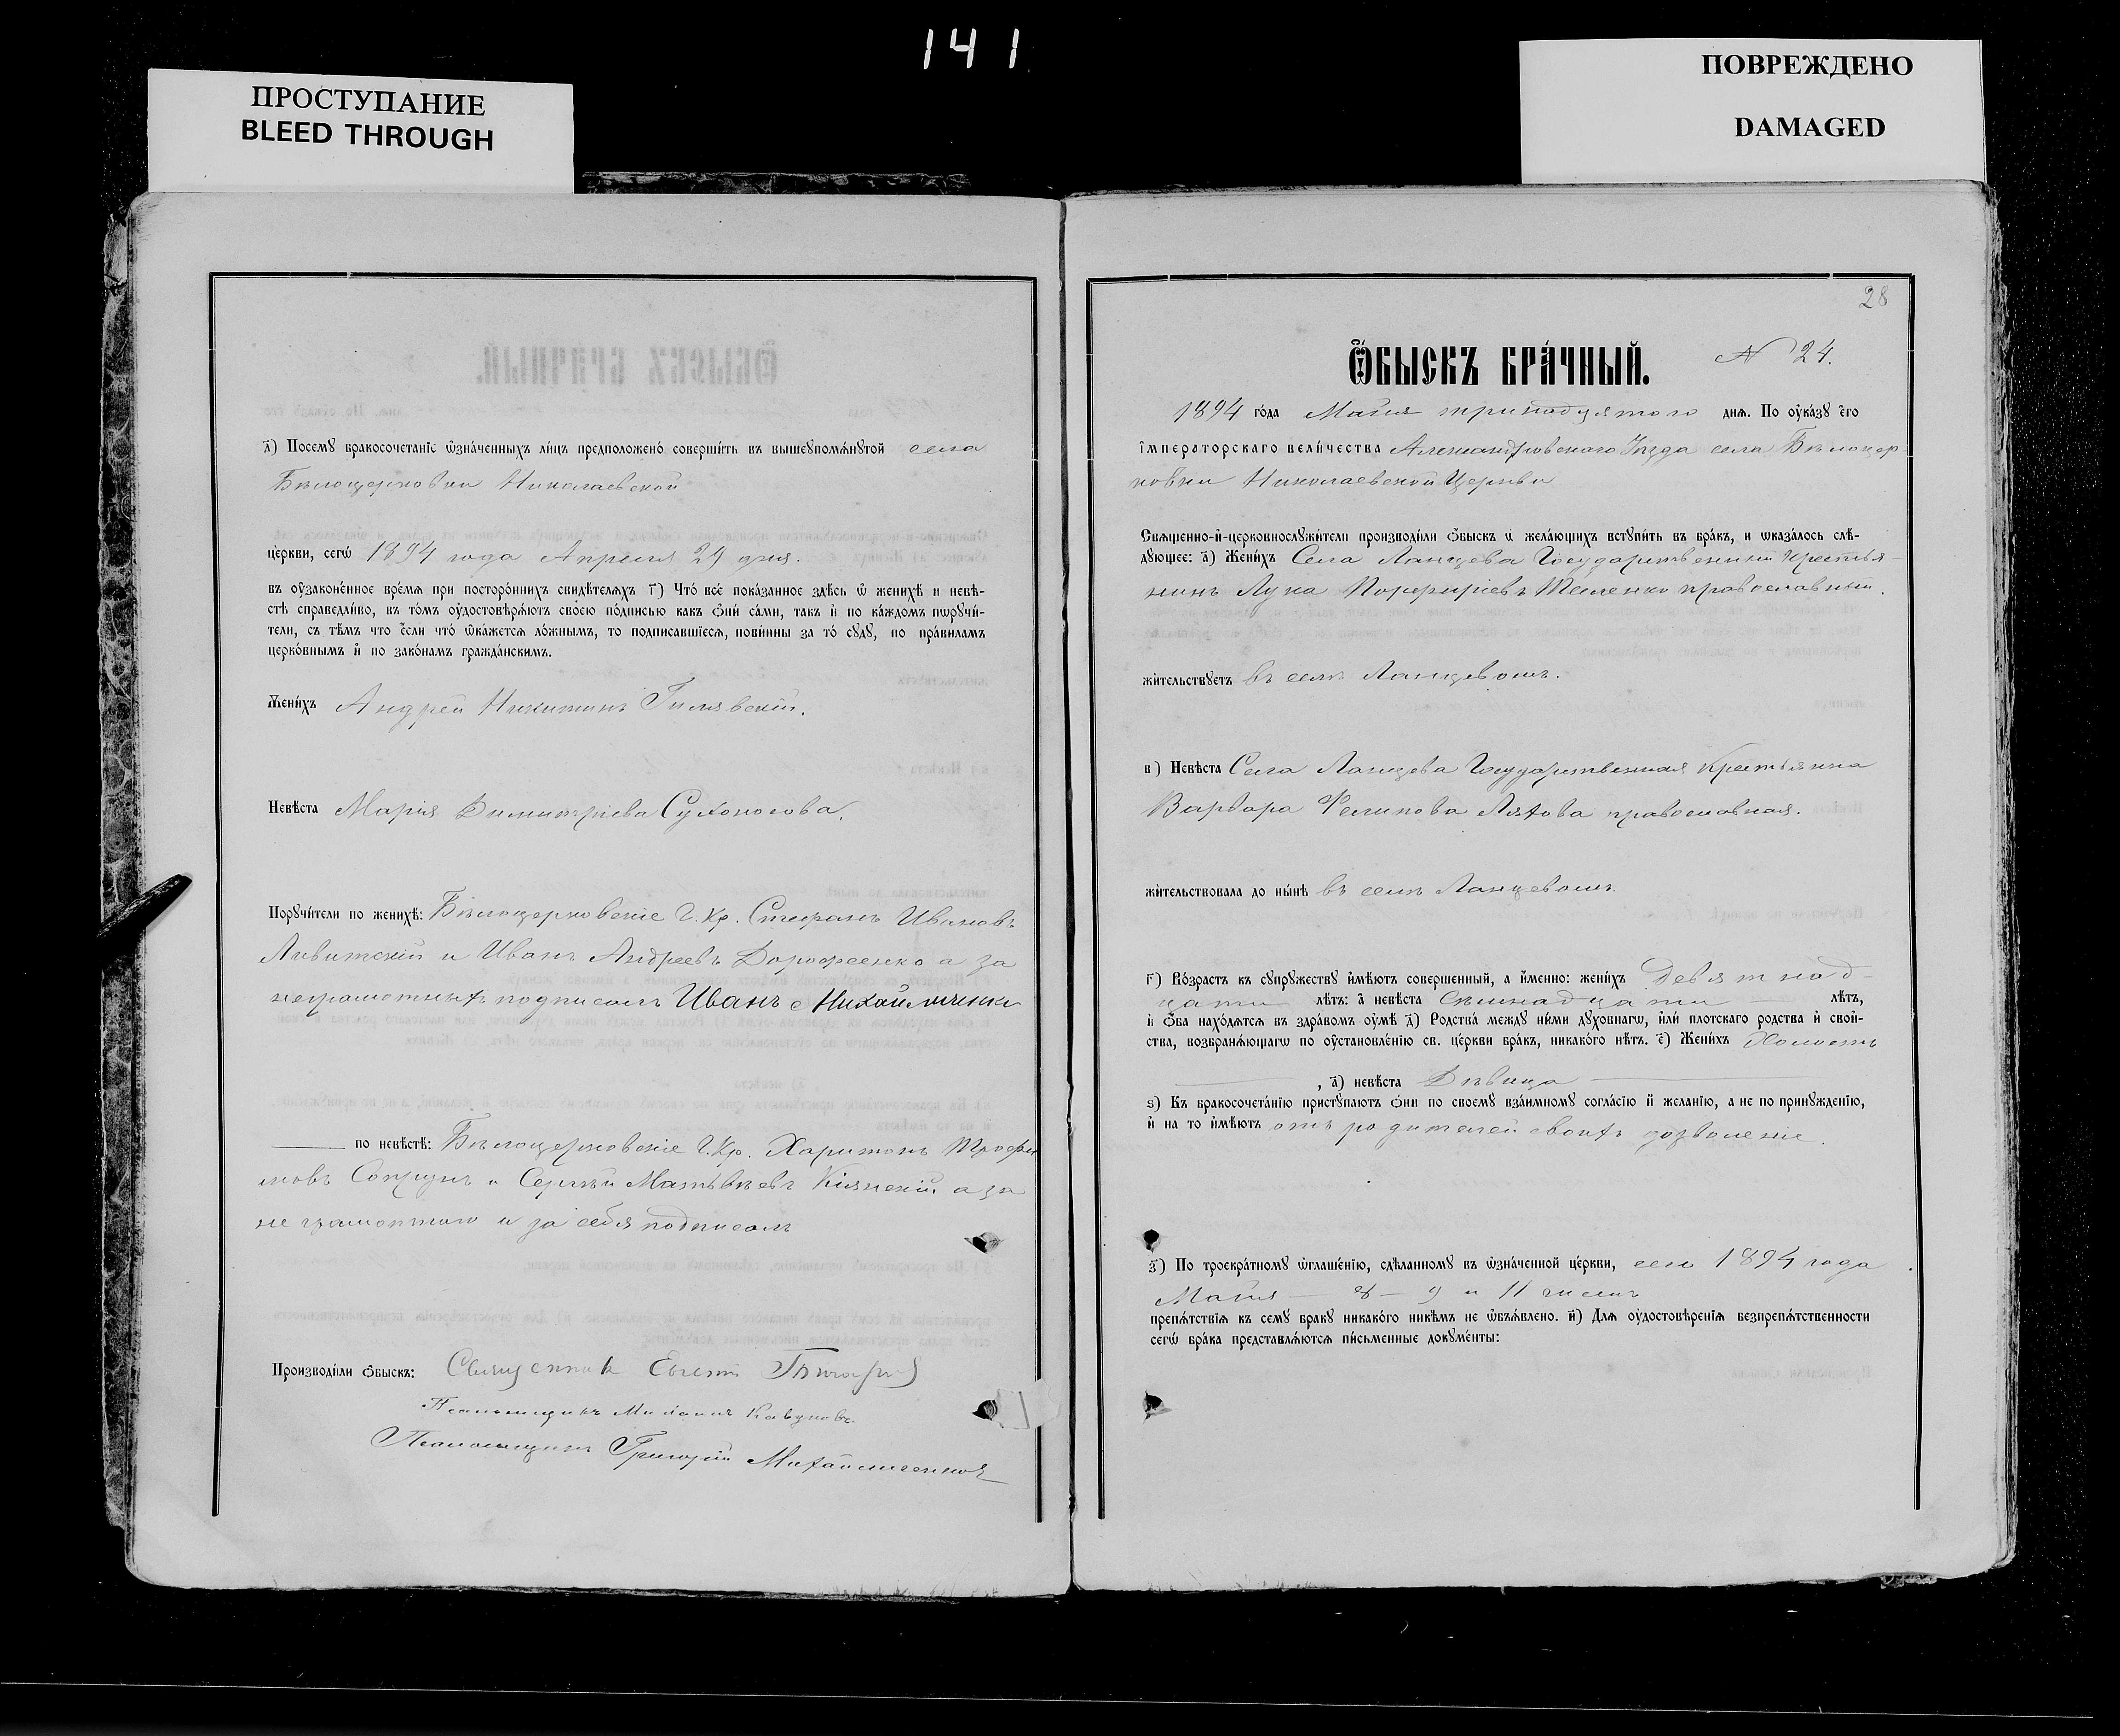 141
ПРОСТУПАНИЕ
BLEED THROUGH
ПОВРЕЖДЕНО
DAMAGED
д҃) Посемꙋ бракосочетаніе ѡзна́ченныхъ ли́цъ предположено́ соверши́ть въ вышеꙋпомѧ́нꙋтой села
Бѣлоцерковки Николаевской
це́ркви, сегѡ̀ 1894 года Апреля 29 дня.
въ оу҆законе́нное вре́мѧ при посторо́ннихъ свидѣ́телѧхъ г҃) Что́ всѐ пока́занное здѣ́сь ѡ҆ женихѣ̀ и невѣ́-
стѣ справедли́во, въ то́мъ оу҆достовѣрѧ́ютъ свое́ю по́дписью какъ ѻ҆нѝ са́ми, такъ и҆ по ка́ждомъ пѡрꙋчи́-
тели, съ тѣ́мъ что є҆́сли что́ ѡ҆ка́жетсѧ ло́жнымъ, то подписавшіесѧ, пови́нны за то́ сꙋдꙋ̀, по пра́виламъ
церко́внымъ и҆ по зако́намъ гражда́нскимъ.
Жени́хъ Андрей Никитинъ Гилявскій.
Невѣ́ста Марія Димитріева Сухоносова.
Порꙋчи́тели по женихѣ̀: Бѣлоцерковскіе Г. Кр. Стефанъ Ивановъ
Ливитскій и Иванъ Андреевъ Дорофеенко а за
неграмотныхъ подписалъ Иванъ Михайличенко
по невѣ́стѣ: Бѣлоцерковскіе Г. Кр. Харитонъ Трофи
мовъ и Сергѣй Матвѣевъ а за
не грамотного и за себя подписалъ
Производи́ли ѻ҆́быскъ: Священникъ Евгеній
Псаломщикъ Михаилъ
Псаломщикъ Григорій Михайличенко
28
Ѻ҆́БЫСКЪ БРА́ЧНЫЙ. № 24.
1894 го́да Майя тринадцятого днѧ̀. По оу҆ка́зꙋ є҆гѡ̀
і҆мператорскаго вели́чества Александровского Уѣзда села Бѣлоцер
ковки Николаевской Церкви
Свѧще́нно-и҆-церковнослꙋжи́тели производи́ли ѻ҆́быскъ ѡ҆ жела́ющихъ встꙋпи́ть въ бра́къ, и ѡ҆каза́лось слѣ́-
дꙋющее: а҃) Жени́хъ Села Ланцева Государственный Крестья-
нинъ Лука Порфиріевъ Теленко православный.
жи́тельствꙋетъ въ селѣ Ланцевомъ.
в҃) Невѣ́ста Села Ланцева Государственная Крестьянка
Варвара Филипова Ляхова православная.
жи́тельствовала до ны́нѣ въ селѣ Ланцевомъ
г҃) Во́зрастъ къ сꙋпрꙋ́жествꙋ и҆мѣ́ютъ соверше́нный, а и҆́менно: жени́хъ Девятнад-
цати лѣ́тъ: а҆ невѣ́ста Семнадцати лѣ́тъ,
и҆ ѻ҆́ба нахо́дѧтсѧ въ здра́вомъ оу҆мѣ̀ д҃) Родства̀ междꙋ ни́ми дꙋхо́внагѡ, и҆лѝ плотскаго родства и҆ свой-
ства, возбранѧ́ющагѡ по оу҆становле́нію св. це́ркви бра́къ, никако́го нѣ́тъ. є҃) Жени́хъ Холостъ
, а҆) невѣ́ста Дѣвица
ѕ҃) Къ бракосочета́нію пристꙋпа́ютъ ѻ҆нѝ по своемꙋ̀ взаи́мномꙋ согла́сію и҆ жела́нію, а не по принꙋжде́нію,
и҆ на то и҆мѣ́ютъ отъ родителей своихъ дозволеніе.
з҃) По троекра́тномꙋ ѡ҆глаше́нію, сдѣ́ланномꙋ въ ѡ҆зна́ченной це́ркви, сего 1894 года
Майя — 8 — 9 и 11 числъ
препѧ́тствіѧ къ семꙋ̀ бракꙋ никако́го никѣ́мъ не ѡ҆бъѧ́влено. и҃) Длѧ оу҆достовѣ́реніѧ безпрепѧ́тственности
сегѡ̀ бра́ка представлѧ́ютсѧ пи́сьменные докꙋме́нты: